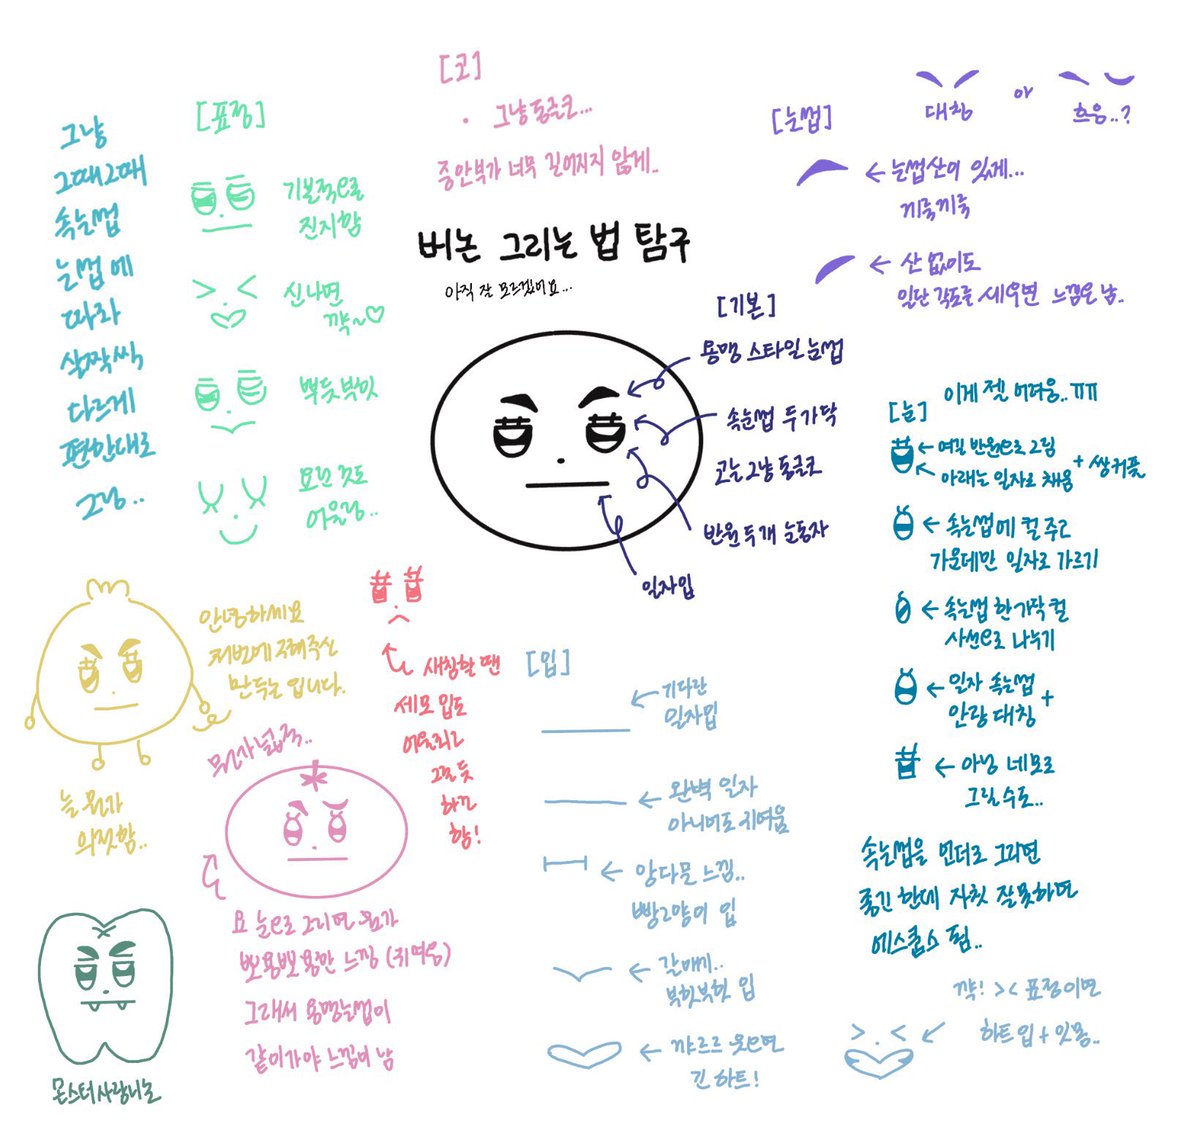 버논 그리는 법 탐구
아직 잘 모르겠어요...
그냥
그때그때
속눈썹
눈썹에
따라
살짝씩
다르게
편한대로
그림..
[표정]
기본적으로
진지함
신나면
꺅~♡
뿌듯부힛
모든 것도
어울림..
[코]
· 그냥 동글코...
중안부가 너무 길어지지 않게..
[눈썹]
대칭
or
흐응..?
← 눈썹산이 있게...
끼룩끼룩
← 산 없이도
일단 각도를 세우면 느낌은 남..
[기본]
용맹 스타일 눈썹
속눈썹 두가닥
코는 그냥 동글코
반원 두개 눈동자
일자입
[눈]
이게 젤 어려움..ㅠㅠ
← 여길 반원으로 그림
아래는 일자로 채움
+ 쌍커풀
← 속눈썹에 컬 주고
가운데만 일자로 가르기
← 속눈썹 한가닥 컬
사선으로 나누기
← 일자 속눈썹
+
안광 대칭
← 아님 네모로
그릴수도..
속눈썹을 언더로 그리면
좋긴 한데 자칫 잘못하면
에스쿱스 됨..
안녕하세요
저번에 구해주신
만두는 입니다.
늘 뭔가
의젓함..
뭔가 넓적..
요 눈으로 그리면 뭔가
뽀용뽀용한 느낌 (귀여움)
그래서 용맹눈썹이
같이가야 느낌이 남
몬스터사랑니논
새침할 땐
세모 입도
어울리고
그럴듯
하긴
함!
[입]
← 기다란
일자입
← 완벽 일자
아니어도 귀여움
← 앙다문 느낌..
빵고양이 입
← 갈매기..
부힛부힛 입
← 꺄르르 웃으면
긴 하트!
꺅! >< 표정이면
하트입 + 잇몸..